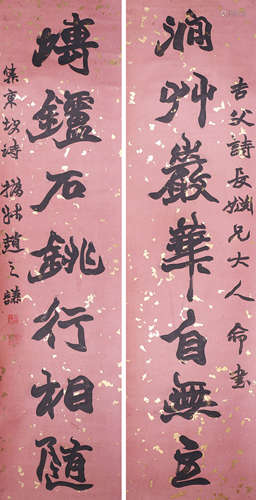 吉父詩長姻兄大人命書
澗艸巖華自無主
塼鑪石銚行相隨
集東坡詩撝叔趙之謙